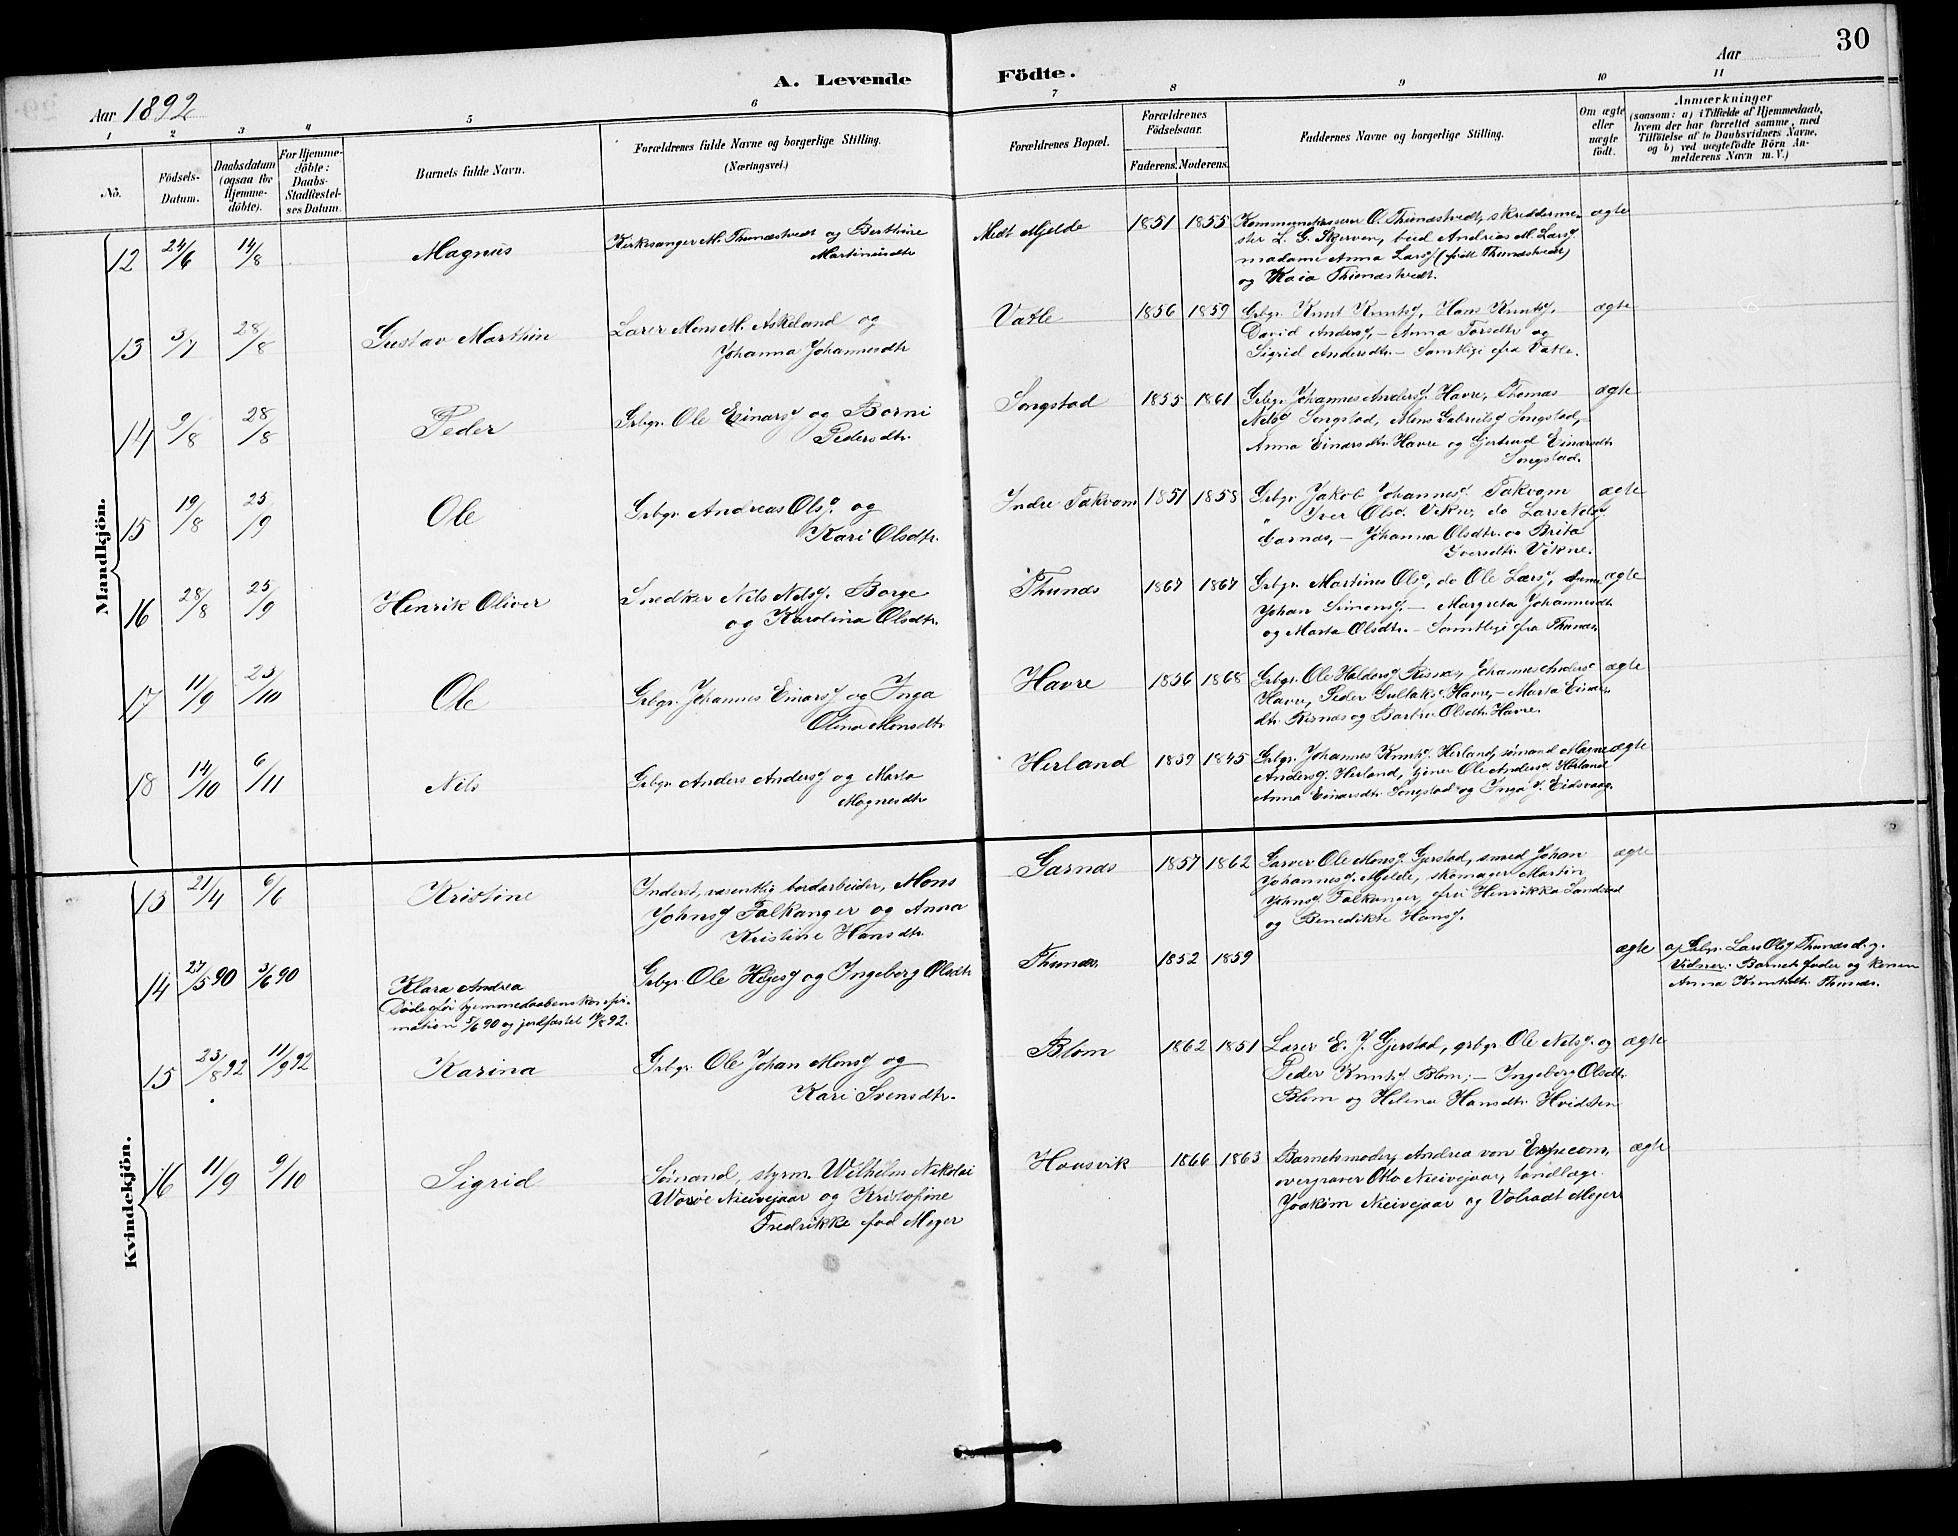 30
A. Levende Födte.
Aar 1892
Aar
1 2 3 4 5 6 7 8 9 10 11
Nō.
Födsels-
Datum.
Daabsdatum
(ogsaa for
Hjemme-
döbte).
For Hjemme-
döbte:
Daabs-
Stadfæstel-
ses Datum.
Barnets fulde Navn.
Forældrenes fulde Navne og borgerlige Stilling.
(Næringsvei.)
Forældrenes Bopæl.
Forældrenes
Födselsaar.
Faderens. Moderens.
Faddernes Navne og borgerlige Stilling.
Om ægte
eller
uægte
födt.
Anmærkninger
(saasom: a) i Tilfælde af Hjemmedaab,
hvem der har forrettet samme, med
Tilföielse af to Daabsvidners Navne,
og b) ved uægtefödte Börn An-
melderens Navn m.V.)
Mandkjön.
12 24/6 14/8 Magnus
Kirkesanger M. Thunæstvedt og Berthine
Martinusdtr
Midt Mjelde 1851 1855
Kommunekasserer O. Thunæstvedt, skrædderme-
ster L. G. Skjerven, bud Andreas M. Larsʃ,
madame Anna Larsʃ (født Thunæstvedt)
og Kaia Thunæstvedt.
ægte
13 3/7 28/8 Gustav Marthin
Lærer Mons M. Askeland og
Johanna Johannesdtr
Vatle 1856 1859
Grbgr. Knut Knutsʃ, Hans Knutsʃ,
David Andersʃ, – Anna Torsdtr og
Sigrid Andersdtr – Samtlige fra Vatle.
ægte
14 9/8 28/8 Peder
Grbgr. Ole Einarsʃ og Borni
Pedersdtr.
Songstad 1855 1861
Grbgr. Johannes Andersʃ. Havre, Thomas
Nelsʃ Songstad, Mons Gabrielsʃ Songstad, –
Anna Einarsdtr. Havre og Gjertrud Einarsdtr
Songstad.
ægte
15 19/8 25/9 Ole
Grbgr. Andreas Olsʃ. og
Kari Olsdtr.
Indre Takvam 1851 1858
Grbgr. Jakob Johannesʃ. Takvam
" Iver Olsʃ. Vikne, do Lars Nelsʃ
Garnæs, – Johanna Olsdtr. og Brita
Iversdtr. Vikne.
ægte
16 28/8 25/9 Henrik Oliver
Snedker Nils Nelsʃ. Borge
og Karolina Olsdtr.
Thunæs 1867 1867
Grbgr. Martines Olsʃ, do Ole Larsʃ,
Johan Simonsʃ, – Margreta Johannesdtr
og Marta Olsdtr. – Samtlige fra Thunæs.
ægte
17 11/9 23/10 Ole
Grbgr. Johannes Einarsʃ og Inga
Olina Monsdtr
Havre 1856 1868
Grbgr. Ole Haldorsʃ Risnæs, Johannes Andersʃ
Havre, Peder Gullaksʃ. Havre, – Marta Einars-
dtr. Risnæs og Barbro Olsdtr. Havre.
ægte
18 14/10 6/11 Nils
Grbgr. Anders Andersʃ og Marta
Magnesdtr
Herland 1839 1845
Grbgr. Johannes Knutsʃ. Herland, sømand Magne
Andersʃ. Herland, tjener Ole Andersʃ. Herland
Anna Einarsdtr. Songstad og Inga J. Eidsvaag.
ægte
Kvindekjön.
13 21/4 6/6 Kristine
Inderst, væsentlig bordarbeider, Mons
Johnsʃ Falkanger og Anna
Kristine Hansdtr.
Garnæs 1857 1862
Garver Ole Monsʃ. Gjerstad, smed Johan
Johannesʃ. Mjelde, skomager Martin
Johnsʃ. Falkanger, frøi Henrikka Landstad
og Benedikte Hansʃ.
ægte
14 27/5 90 3/6 90 Klara Andrea
Døde før hjemmedaabens konfir-
mation 5/6 90 og jordfæstet 14/8 92.
Grbgr. Ole Helgesʃ og Ingeborg Olsdtr
Thunæs 1852 1859
ægte
a) Grbgr. Lars Olsʃ Thunæs d. y.
Vidner: Barnets fader og konen
Anna Knutsdtr. Thunæs.
15 23/8 92 11/9 92 Karina
Grbgr. Ole Johan Monsʃ og
Kari Svensdtr.
Blom 1862 1851
Lærer E. J. Gjerstad, grbgr. Ole Nelsʃ. og
Peder Knutsʃ. Blom; – Ingeborg Olsdtr.
Blom og Helena Hansdtr. Hvidsten
ægte
16 11/9 9/10 Sigrid
Sømand, styrm. Wilhelm Nikolai
Worsøe Nieivejaar og Kristofine
Fredrikke fød Meyer
Hausvik 1866 1863
Barnets moder, Andrea von Erpecom,
overgraver Otto Nieivejaar, tandlæge
Joakim Nieivejaar og Volradt Meyer
ægte